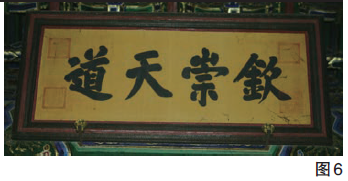 欽崇天道
图6